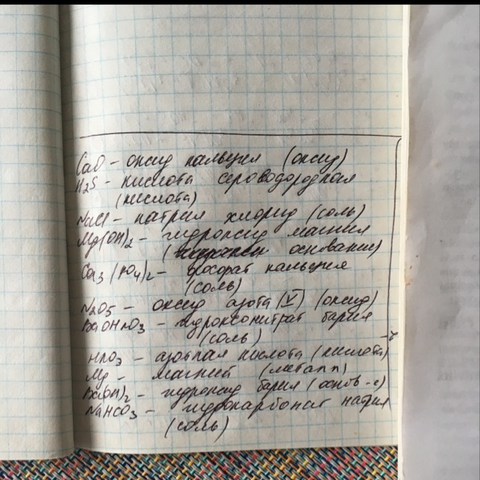 CaO - оксид кальция (оксид)
H₂S - кислота сероводородная
(кислота)
NaCl - натрия хлорид (соль)
Mg(OH)₂ - гидроксид магния
( основание)
Ca₃(PO₄)₂ - фосфат кальция
(соль)
N₂O₅ - оксид азота (V) (оксид)
BaOHNO₃ - гидроксонитрат бария
(соль)
HNO₃ - азотная кислота (кислота)
Mg - магний (металл)
Ba(OH)₂ - гидроксид бария (основ-е)
NaHCO₃ - гидрокарбонат натрия
(соль)